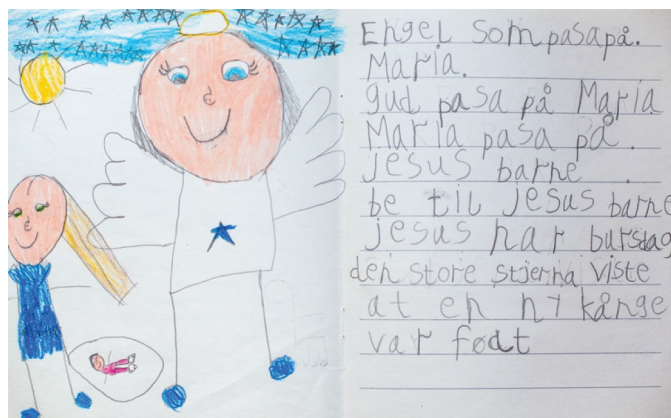 Engel som pasa på.
Maria.
gud pasa på Maria
Maria pasa på.
jesus barne.
be til jesus barne
jesus har bursdag
den store stjerna viste
at en ny kånge
var født